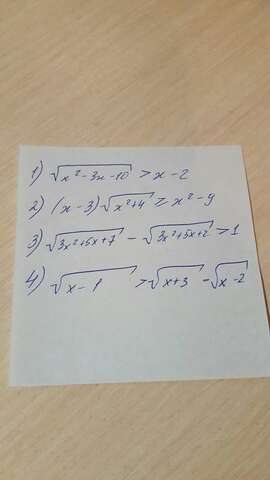 1) √(x²-3x-10) > x-2
2) (x-3)√(x²+4) ≥ x²-9
3) √(3x²+5x+7) - √(3x²+5x+2) > 1
4) √(x-1) > √(x+3) - √(x-2)